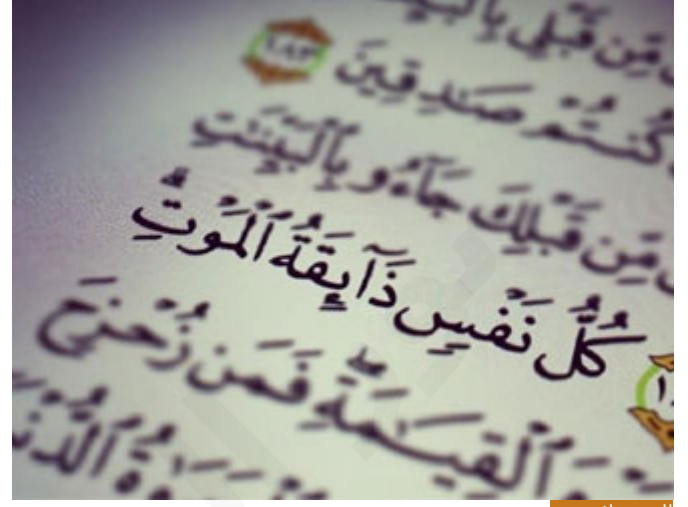 مِّن قَبْلِي بِٱلْبَيِّ
كُنتُمْ صَٰدِقِينَ ١٨٣
مِّن قَبْلِكَ جَآءُو بِٱلْبَيِّنَٰتِ
كُلُّ نَفْسٍ ذَآئِقَةُ ٱلْمَوْتِ ۗ
ٱلْقِيَٰمَةِ ۖ فَمَن زُحْزِحَ
ٱلدُّنْ